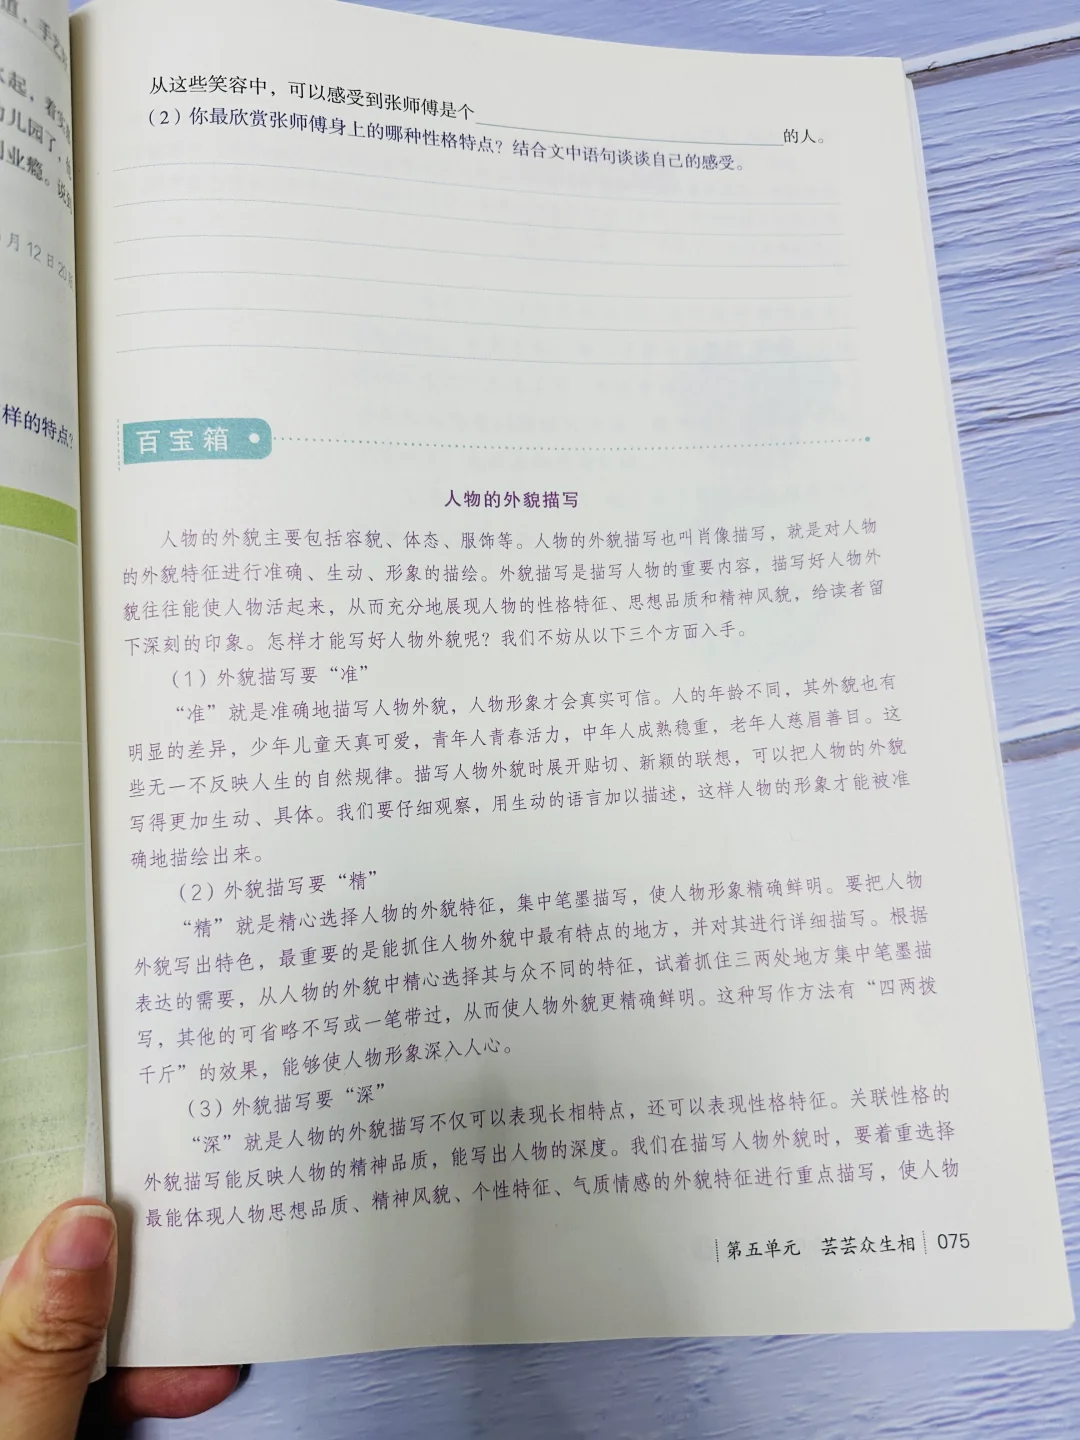 道，手艺
起，着实
幼儿园了，他
业瘾。说
月12日20版
样的特点？
从这些笑容中，可以感受到张师傅是个 的人。
（2）你最欣赏张师傅身上的哪种性格特点？结合文中语句谈谈自己的感受。
百宝箱
人物的外貌描写
人物的外貌主要包括容貌、体态、服饰等。人物的外貌描写也叫肖像描写，就是对人物
的外貌特征进行准确、生动、形象的描绘。外貌描写是描写人物的重要内容，描写好人物外
貌往往能使人物活起来，从而充分地展现人物的性格特征、思想品质和精神风貌，给读者留
下深刻的印象。怎样才能写好人物外貌呢？我们不妨从以下三个方面入手。
（1）外貌描写要“准”
“准”就是准确地描写人物外貌，人物形象才会真实可信。人的年龄不同，其外貌也有
明显的差异，少年儿童天真可爱，青年人青春活力，中年人成熟稳重，老年人慈眉善目。这
些无一不反映人生的自然规律。描写人物外貌时展开贴切、新颖的联想，可以把人物的外貌
写得更加生动、具体。我们要仔细观察，用生动的语言加以描述，这样人物的形象才能被准
确地描绘出来。
（2）外貌描写要“精”
“精”就是精心选择人物的外貌特征，集中笔墨描写，使人物形象精确鲜明。要把人物
外貌写出特色，最重要的是能抓住人物外貌中最有特点的地方，并对其进行详细描写。根据
表达的需要，从人物的外貌中精心选择其与众不同的特征，试着抓住三两处地方集中笔墨描
写，其他的可省略不写或一笔带过，从而使人物外貌更精确鲜明。这种写作方法有“四两拨
千斤”的效果，能够使人物形象深入人心。
（3）外貌描写要“深”
“深”就是人物的外貌描写不仅可以表现长相特点，还可以表现性格特征。关联性格的
外貌描写能反映人物的精神品质，能写出人物的深度。我们在描写人物外貌时，要着重选择
最能体现人物思想品质、精神风貌、个性特征、气质情感的外貌特征进行重点描写，使人物
第五单元 芸芸众生相 075